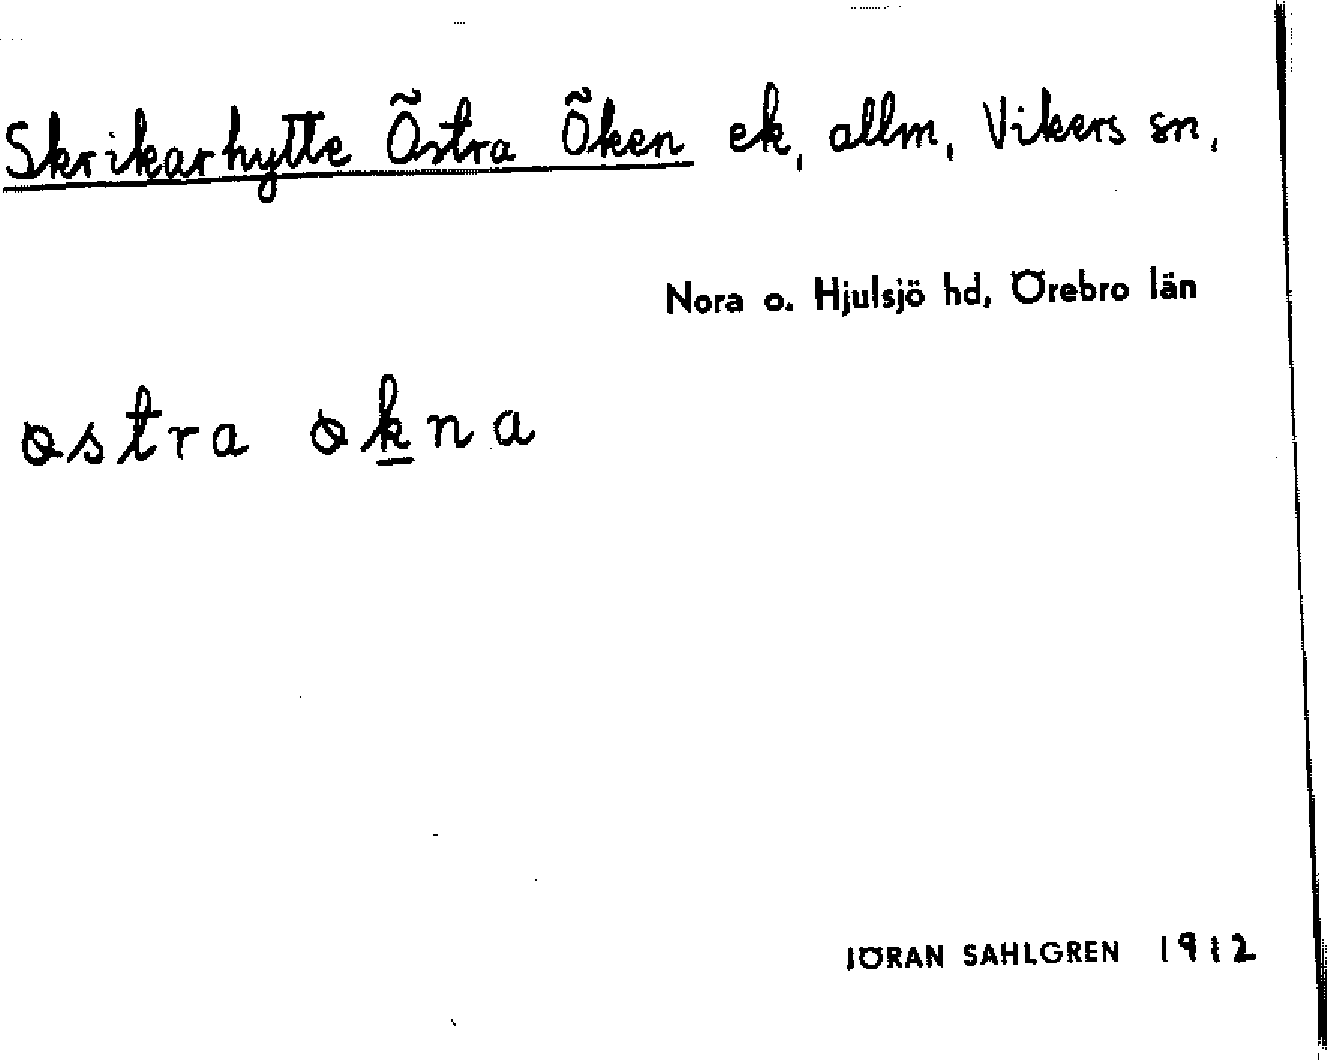 Skrikarhytte Östra Öken ek, allm, Vikers sn,
Nora o. Hjulsjö hd, Örebro län
østra økna
JÖRAN SAHLGREN 1912